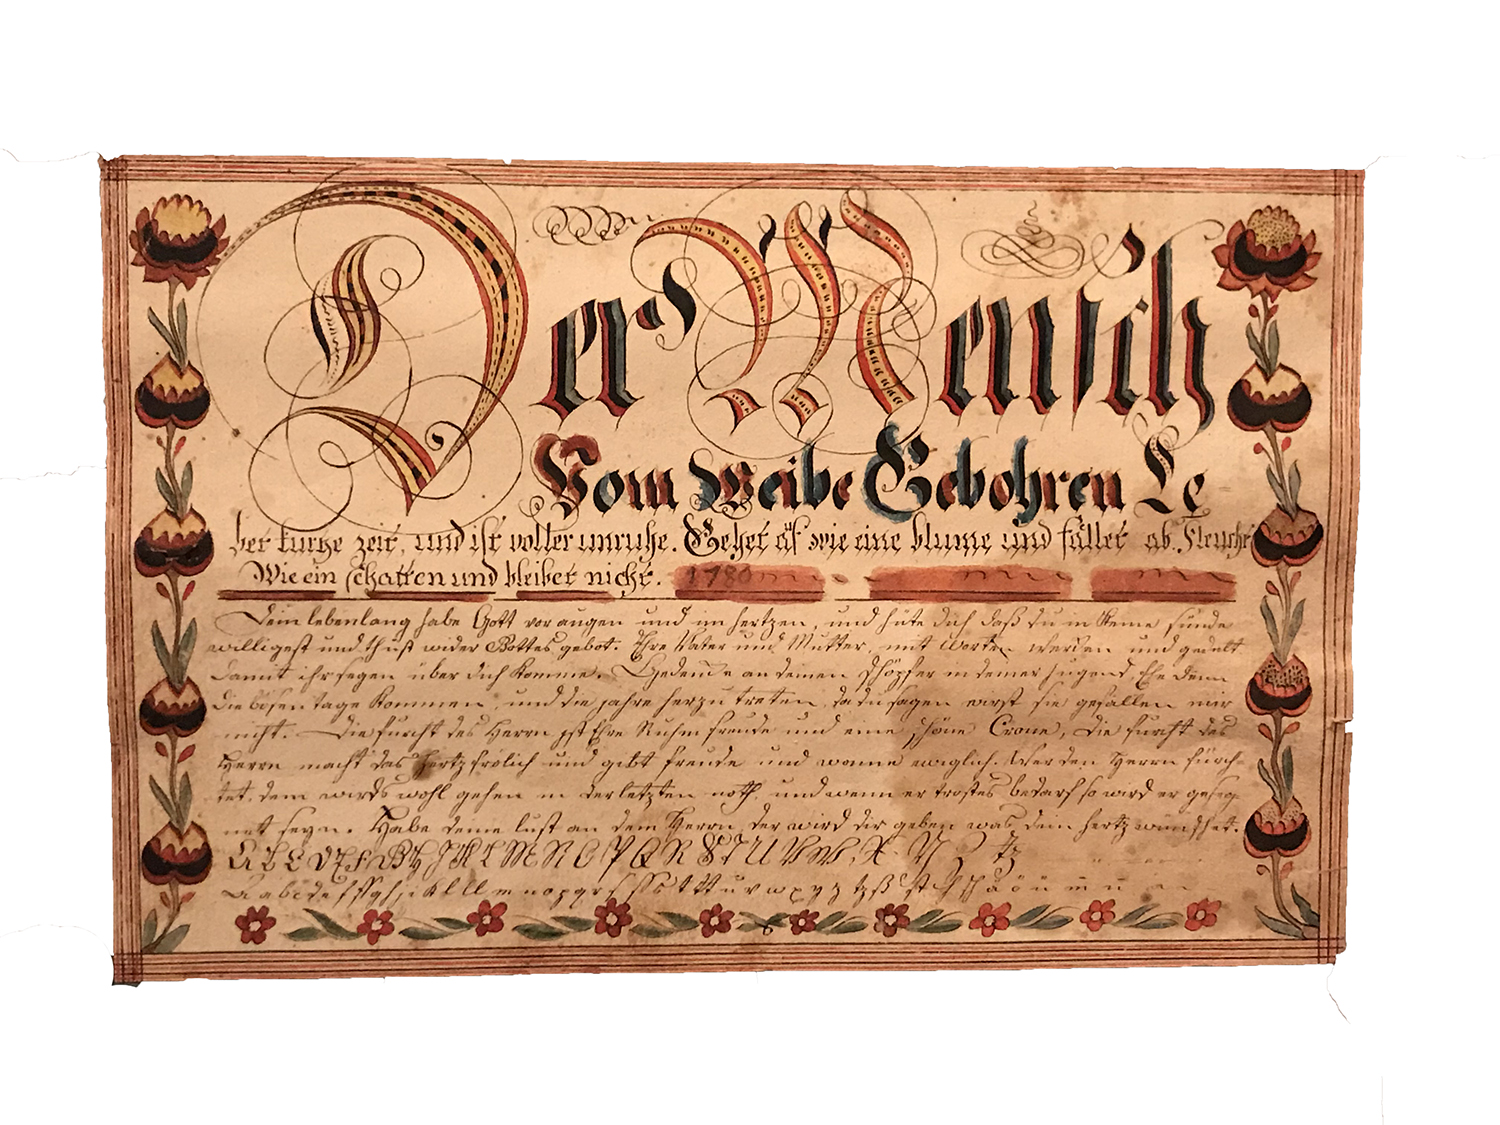 Der Mensch
Vom Weibe Gebohren Le
bet kurtze zeit, und ist voller unruhe. Gehet auf wie eine blume und fället ab. Fleucht
Wie ein schatten und bleibet nicht. 1780
Dein lebenlang habe Gott vor augen und im hertzen, und hüte dich daß du in keine sünde
willigest und thust wider Gottes gebot. Ehre Vater und Mutter, mit worten wercken und gedult
damit ihr segen über dich komme. Gedencke an deinen schöpfer in deiner jugend, Ehe denn
die bösen tage kommen, und die jahre herzu treten, da du sagen wirst sie gefallen mir
nicht. Die furcht des Herrn jst Ehre Ruhm freude und eine schöne Crone, Die furcht des
Herrn macht das hertz frölich und gibt freude und wonne ewiglich. Wer den Herrn fürch-
tet, dem wirds wohl gehen in der letzten noth, und wenn er trostes bedarf so wird er geseg-
net seyn. Habe deine lust an dem Herrn, der wird dir geben was dein hertz wünschet.
A B C D E F G H J K L M N O P Q R S T U V W X Y Z tz
a b c d e f ff g h j i k l ll m n o p q r s ss t tt u v w x y z tz ß st ch sch ä ö ü m n